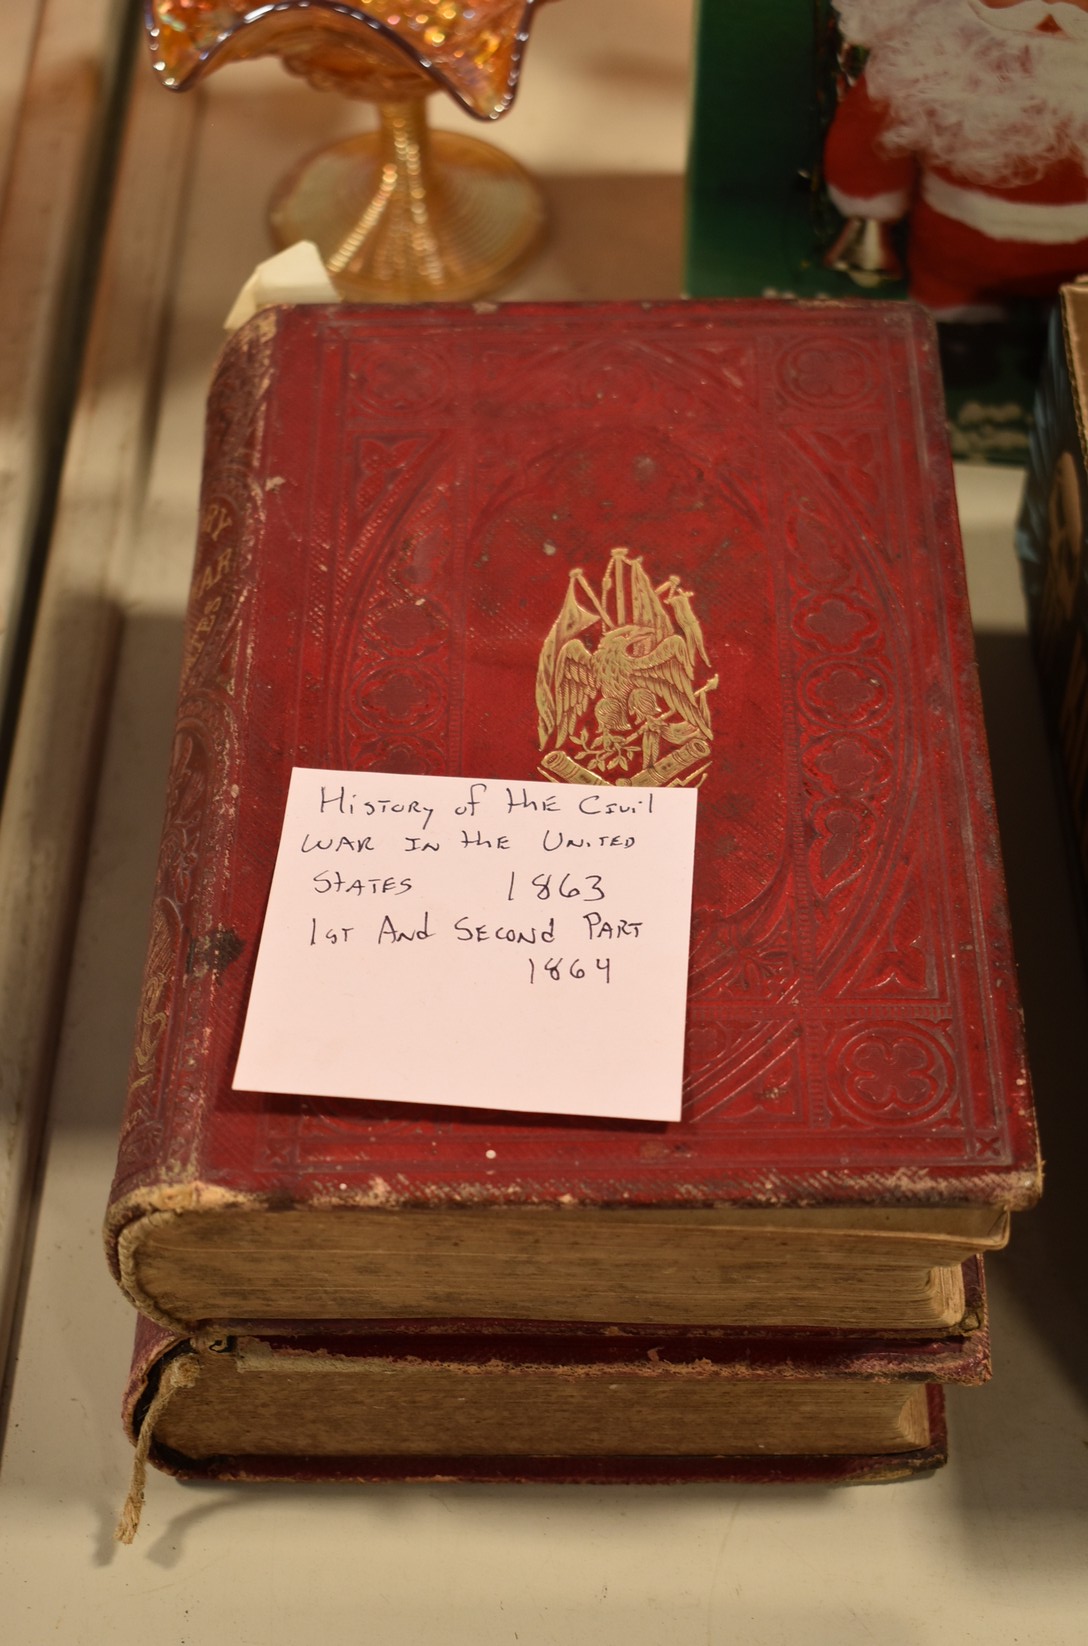 History of the Civil
War in the United
States 1863
1st And Second Part
1864